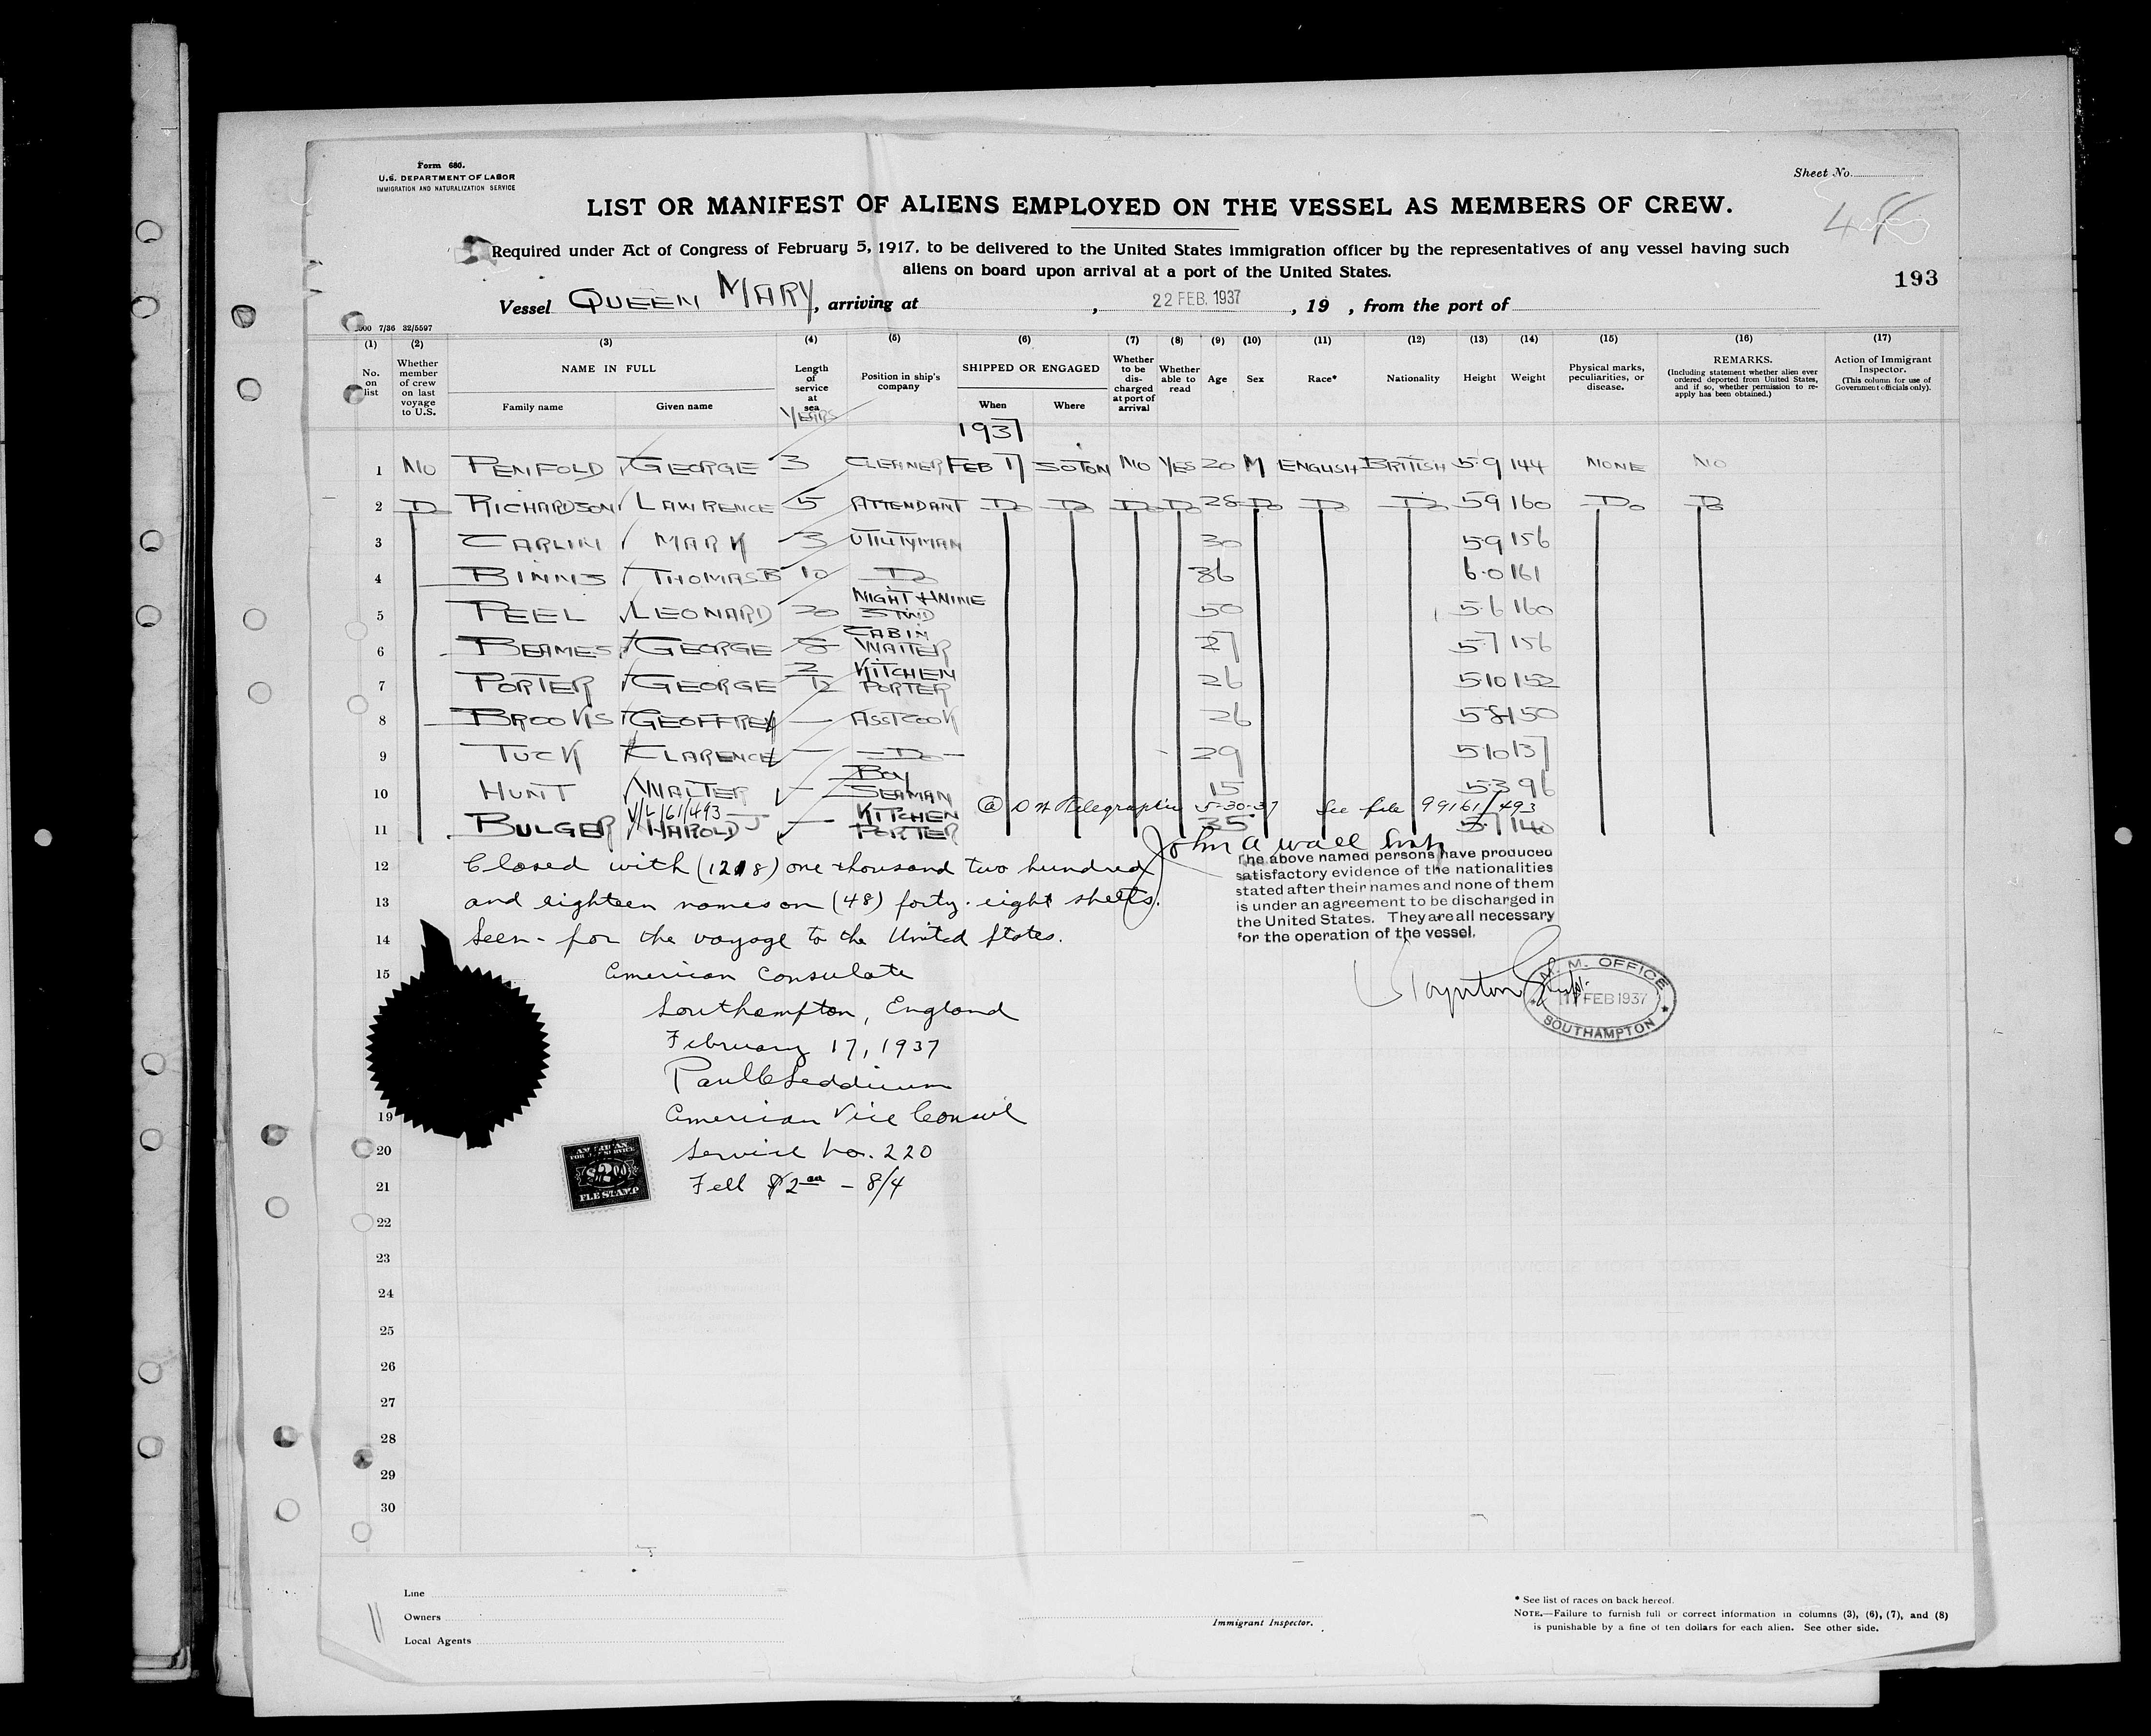 Form 680.
U.S. DEPARTMENT OF LABOR
IMMIGRATION AND NATURALIZATION SERVICE
Sheet No.
LIST OR MANIFEST OF ALIENS EMPLOYED ON THE VESSEL AS MEMBERS OF CREW.
48
Required under Act of Congress of February 5, 1917, to be delivered to the United States immigration officer by the representatives of any vessel having such
aliens on board upon arrival at a port of the United States.
193
Vessel QUEEN MARY, arriving at , 22 FEB. 1937 , 19 , from the port of
7/36 32/5597
(1) (2) (3) (4) (5) (6) (7) (8) (9) (10) (11) (12) (13) (14) (15) (16) (17)
No. on list
Whether member of crew on last voyage to U.S.
NAME IN FULL
Family name
Given name
Length of service at sea
YEARS
Position in ship's company
SHIPPED OR ENGAGED
When
Where
Whether to be discharged at port of arrival
Whether able to read
Age
Sex
Race*
Nationality
Height
Weight
Physical marks, peculiarities, or disease.
REMARKS.
(Including statement whether alien ever ordered deported from United States, and if so, whether permission to reapply has been obtained.)
Action of Immigrant Inspector.
(This column for use of Government officials only).
1937
1 NO PENFOLD GEORGE 3 CLEANER FEB 17 SOTON NO YES 20 M ENGLISH BRITISH 5-9 144 NONE NO
2 Do RICHARDSON LAWRENCE 5 ATTENDANT Do Do Do Do 28 Do Do Do 5 9 160 Do Do
3 CARLIN MARK 3 UTILITYMAN 30 5-9 156
4 BINNS THOMAS B 10 Do 36 6-0 161
5 PEEL LEONARD 20 NIGHT STWD 50 5-6 160
6 BEAMES GEORGE 8 CABIN WAITER 27 5-7 156
7 PORTER GEORGE 2/12 KITCHEN PORTER 26 5-10 152
8 BROOKS GEOFFREY — ASST COOK 26 5-8 150
9 TUCK CLARENCE — Do — 29 5-10 137
10 HUNT WALTER — BOY SEAMAN 15 5-3 96
V/L 161/493 @ Telegraphic 5-30-37 See file 99161/493
11 BULGER HAROLD J — KITCHEN PORTER 35 5-7 140
John A Wall
12 Closed with (1218) one thousand two hundred
13 and eighteen names on (48) forty-eight sheets.
14 Seen - for the voyage to the United States.
The above named persons have produced
satisfactory evidence of the nationalities
stated after their names and none of them
is under an agreement to be discharged in
the United States. They are all necessary
for the operation of the vessel.
15 American Consulate
Southampton, England
February 17, 1937
American Vice Consul
M. M. OFFICE
17 FEB 1937
SOUTHAMPTON
19
20 Service No. 220
21 Fee $2.00 - 8/4
$2.00
FEE STAMP
22
23
24
25
26
27
28
29
30
Line
Owners
Local Agents
Immigrant Inspector.
* See list of races on back hereof.
NOTE.—Failure to furnish full or correct information in columns (3), (6), (7), and (8)
is punishable by a fine of ten dollars for each alien. See other side.